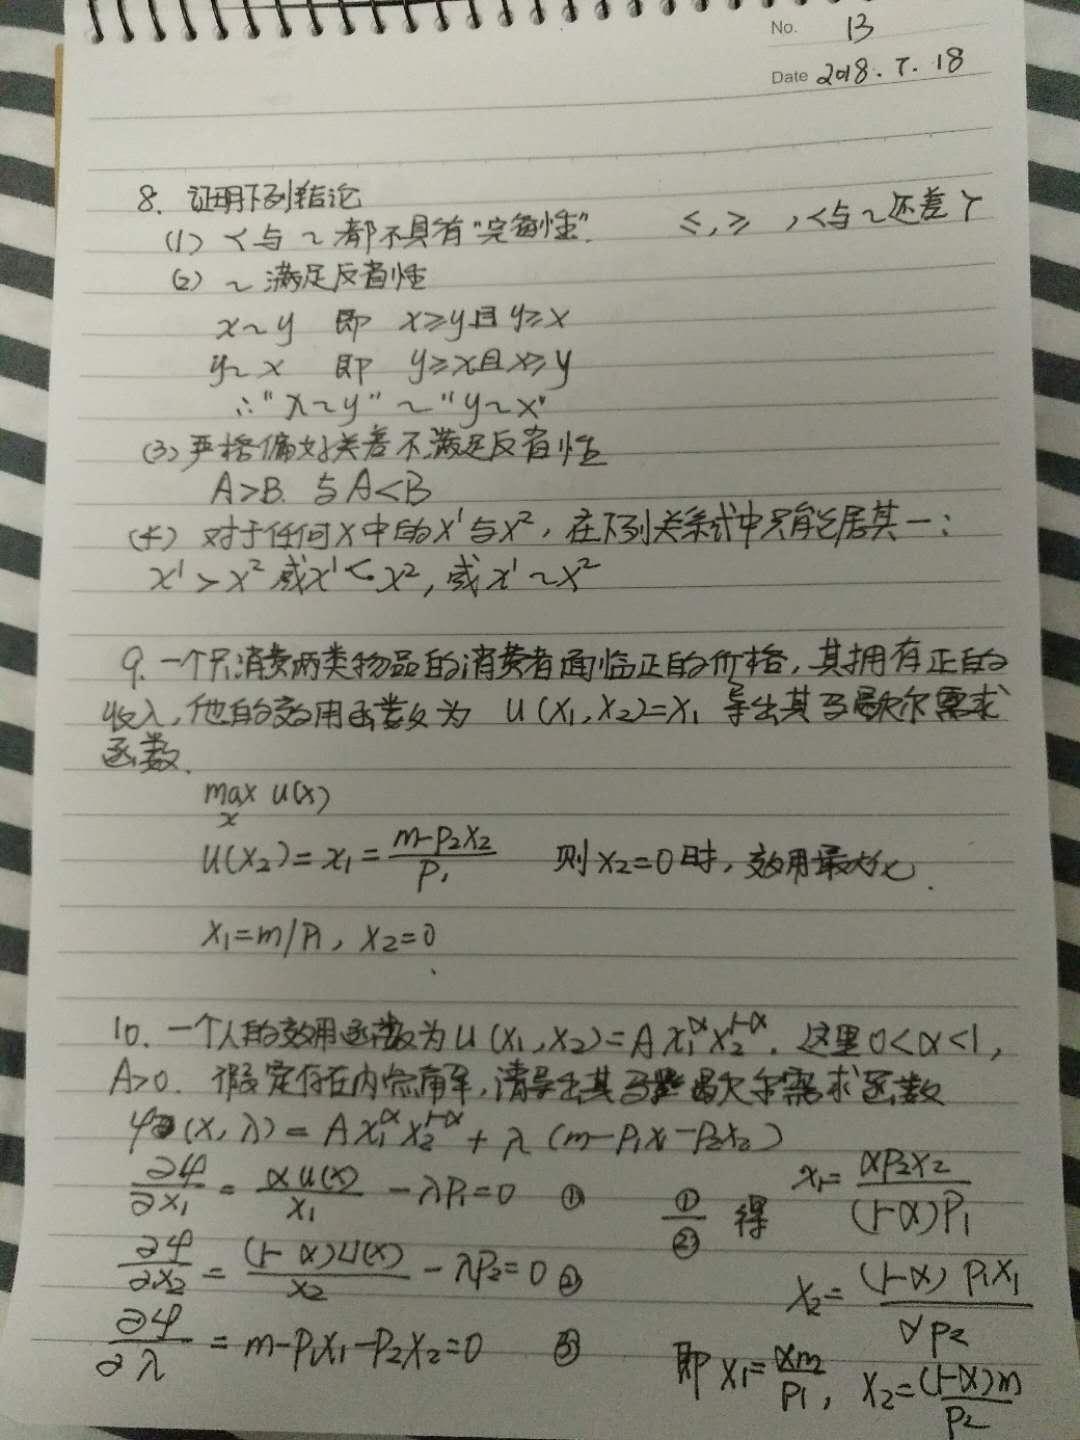 No. 13
Date 2018.7.18
8. 证明下列结论
(1) <与~都不具有"完备性". ≤,≥ ,<与~还差>
(2) ~满足反省性
x~y 即 x≥y且y≥x
y~x 即 y≥x且x≥y
∴"x~y" ~ "y~x"
(3) 严格偏好关系不满足反省性
A>B 与A<B
(4) 对于任何X中的x¹与x², 在下列关系式中只能居其一:
x¹>x²或x¹<x², 或x¹~x²
9. 一个只消费两类物品的消费者面临正的价格, 其拥有正的
收入, 他的效用函数为 u(x₁,x₂)=x₁ 导出其马歇尔需求
函数.
max u(x)
x
u(x₂)=x₁=(m-p₂x₂)/p₁ 则x₂=0时, 效用最大化.
x₁=m/p₁, x₂=0
10. 一个人的效用函数为u(x₁,x₂)=Ax₁^αx₂^(1-α). 这里0<α<1,
A>0. 假定存在内点解, 请导出其马歇尔需求函数
φ(x,λ)=Ax₁^αx₂^(1-α)+λ(m-p₁x₁-p₂x₂)
∂φ/∂x₁=αu(x)/x₁-λp₁=0 ① ①/② 得 x₁=αp₂x₂/((1-α)p₁)
∂φ/∂x₂=(1-α)u(x)/x₂-λp₂=0 ② x₂=(1-α)p₁x₁/(αp₂)
∂φ/∂λ=m-p₁x₁-p₂x₂=0 ③ 即x₁=αm/p₁, x₂=(1-α)m/p₂